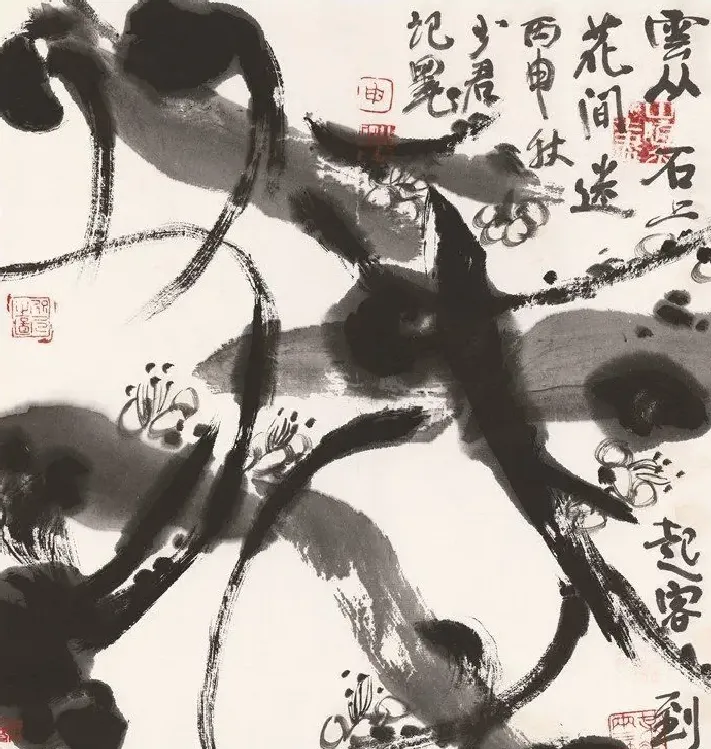 雲从石上起客到
花間迷
丙申秋
少君
記